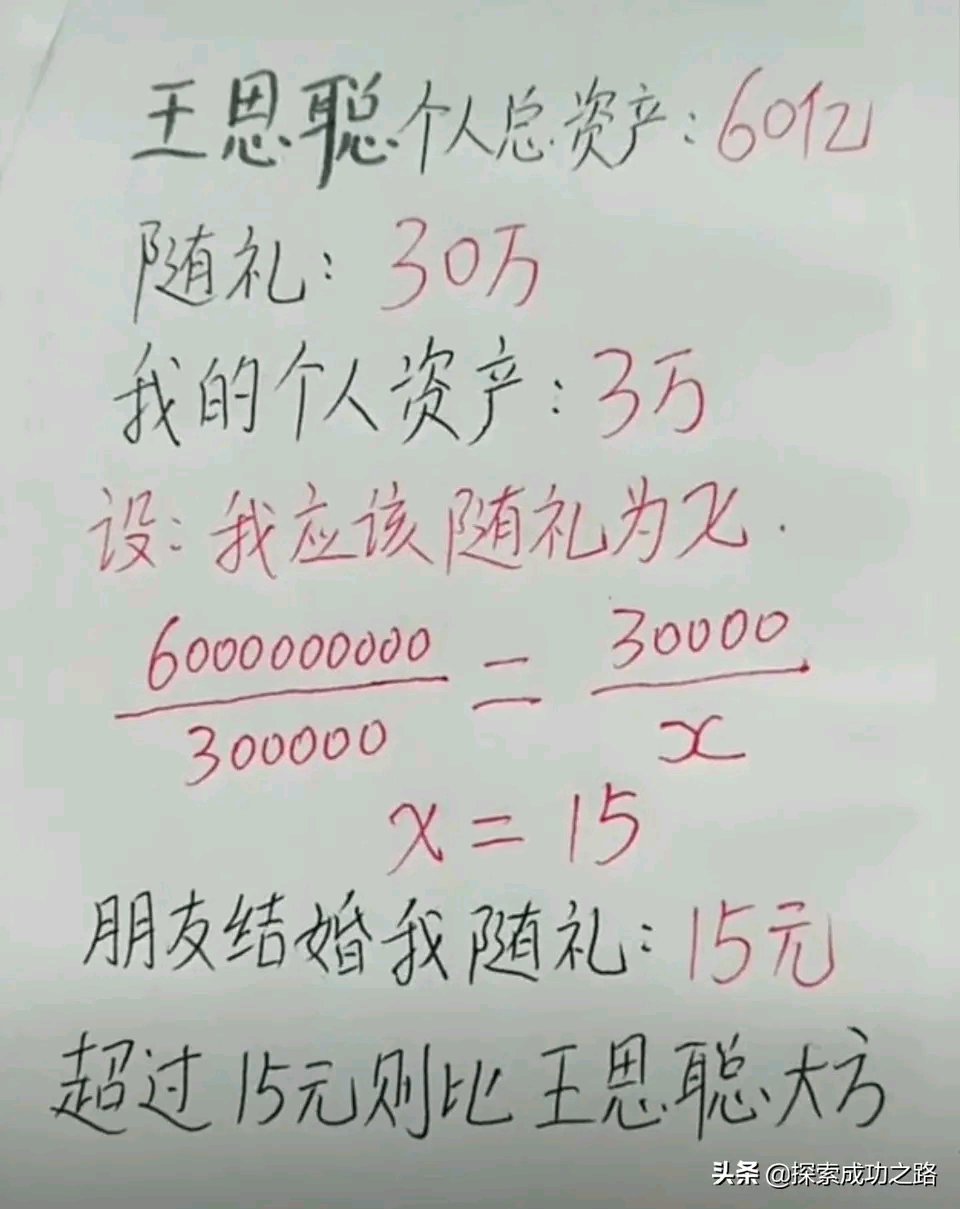 王思聪个人总资产:60亿
随礼:30万
我的个人资产:3万
设:我应该随礼为x.
6000000000/300000 = 30000/x
x=15
朋友结婚我随礼:15元
超过15元则比王思聪大方
头条 @探索成功之路